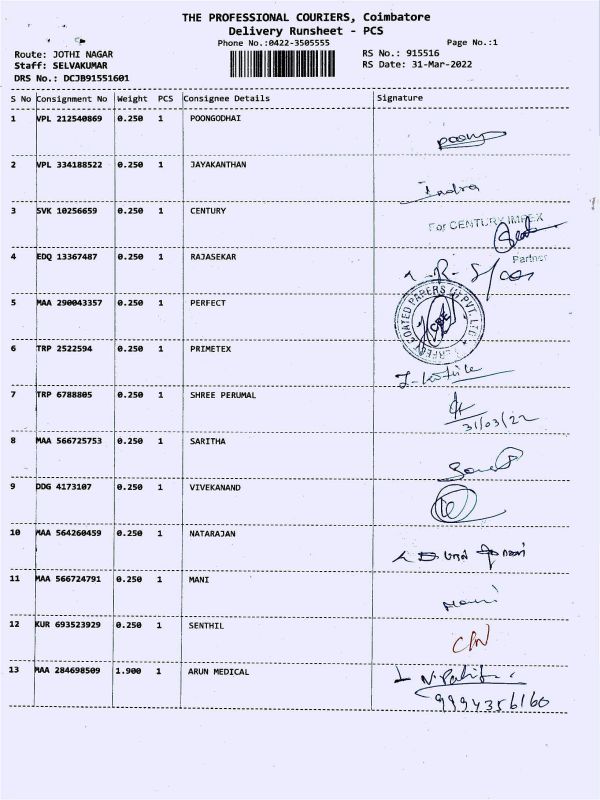 THE PROFESSIONAL COURIERS, Coimbatore
Delivery Runsheet - PCS
Phone No.:0422-3505555 Page No.:1
Route: JOTHI NAGAR RS No.: 915516
Staff: SELVAKUMAR RS Date: 31-Mar-2022
DRS No.: DCJB91551601
S No Consignment No Weight PCS Consignee Details Signature
1 VPL 212540869 0.250 1 POONGODHAI
2 VPL 334188522 0.250 1 JAYAKANTHAN
Indra
3 SVK 10256659 0.250 1 CENTURY
For CENTURY IMPEX
Partner
4 EDQ 13367487 0.250 1 RAJASEKAR
5 MAA 290043357 0.250 1 PERFECT
PERFECT COATED PAPERS (I) PVT. LTD.
CBE
6 TRP 2522594 0.250 1 PRIMETEX
7 TRP 6788805 0.250 1 SHREE PERUMAL
31/03/22
8 MAA 566725753 0.250 1 SARITHA
9 DDG 4173107 0.250 1 VIVEKANAND
10 MAA 564260459 0.250 1 NATARAJAN
11 MAA 566724791 0.250 1 MANI
Mani
12 KUR 693523929 0.250 1 SENTHIL
13 MAA 284698509 1.900 1 ARUN MEDICAL
9994356160